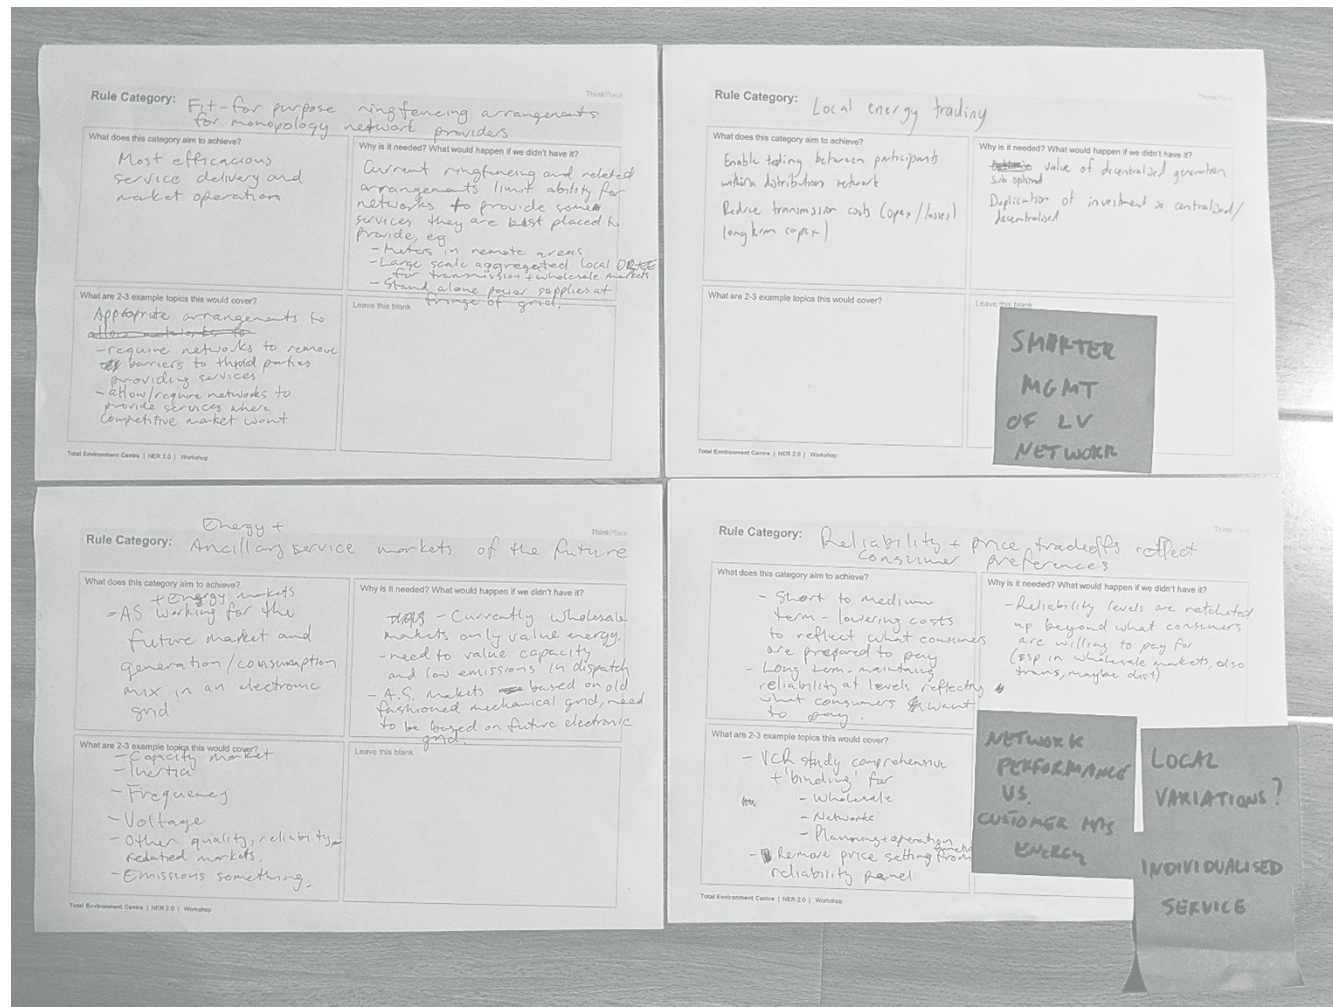 ThinkPlace
Rule Category: Fit-for purpose ringfencing arrangements
for monopology network providers
What does this category aim to achieve?
Most efficacious
service delivery and
market operation
Why is it needed? What would happen if we didn't have it?
Current ringfencing and related
arrangements limit ability for
networks to provide some
services they are best placed to
provide, eg
- Meters in remote areas
- Large scale aggregated local
for transmission + wholesale markets
- Stand alone power supplies at
fringe of grid.
What are 2-3 example topics this would cover?
Appropriate arrangements to
allow networks to
- require networks to remove
barriers to third parties
providing services
- allow/require networks to
provide services where
competitive market wont
Leave this blank
Total Environment Centre | NER 2.0 | Workshop
ThinkPlace
Rule Category: Local energy trading
What does this category aim to achieve?
Enable trading between participants
within a distribution network
Reduce transmission costs (opex/losses)
long term capex)
Why is it needed? What would happen if we didn't have it?
value of decentralised generation
sub optimal
Duplication of investment in centralised/
decentralised
What are 2-3 example topics this would cover?
Leave this blank
SMARTER
MGMT
OF LV
NETWORK
Total Environment Centre | NER 2.0 | Workshop
ThinkPlace
Energy +
Rule Category: Ancillary service markets of the future
What does this category aim to achieve?
+ Energy markets
- AS working for the
future market and
generation/consumption
mix in an electronic
grid
Why is it needed? What would happen if we didn't have it?
- Currently wholesale
markets only value energy.
- need to value capacity
and low emissions in dispatch
- A.S. markets based on old
fashioned mechanical grid, need
to be based on future electronic
grid.
What are 2-3 example topics this would cover?
- Capacity market
- Inertia
- Frequency
- Voltage
- Other quality, reliability
related markets.
- Emissions something.
Leave this blank
Total Environment Centre | NER 2.0 | Workshop
ThinkPlace
Rule Category: Reliability + price tradeoffs reflect
consumer preferences
What does this category aim to achieve?
- Short to medium
term - lowering costs
to reflect what consumers
are prepared to pay
- Long term - maintaining
reliability at levels reflecting
what consumers want
to pay.
Why is it needed? What would happen if we didn't have it?
- Reliability levels are ratcheted
up beyond what consumers
are willing to pay for
(esp in wholesale markets, also
trans, maybe dist)
What are 2-3 example topics this would cover?
- VCR study comprehensive
+ 'binding' for
- Wholesale
- Networks
- Planning + operation
- Remove price setting from
reliability panel
NETWORK
PERFORMANCE
VS.
CUSTOMER
ENERGY
LOCAL
VARIATIONS?
INDIVIDUALISED
SERVICE
Total Environment Centre | NER 2.0 | Workshop